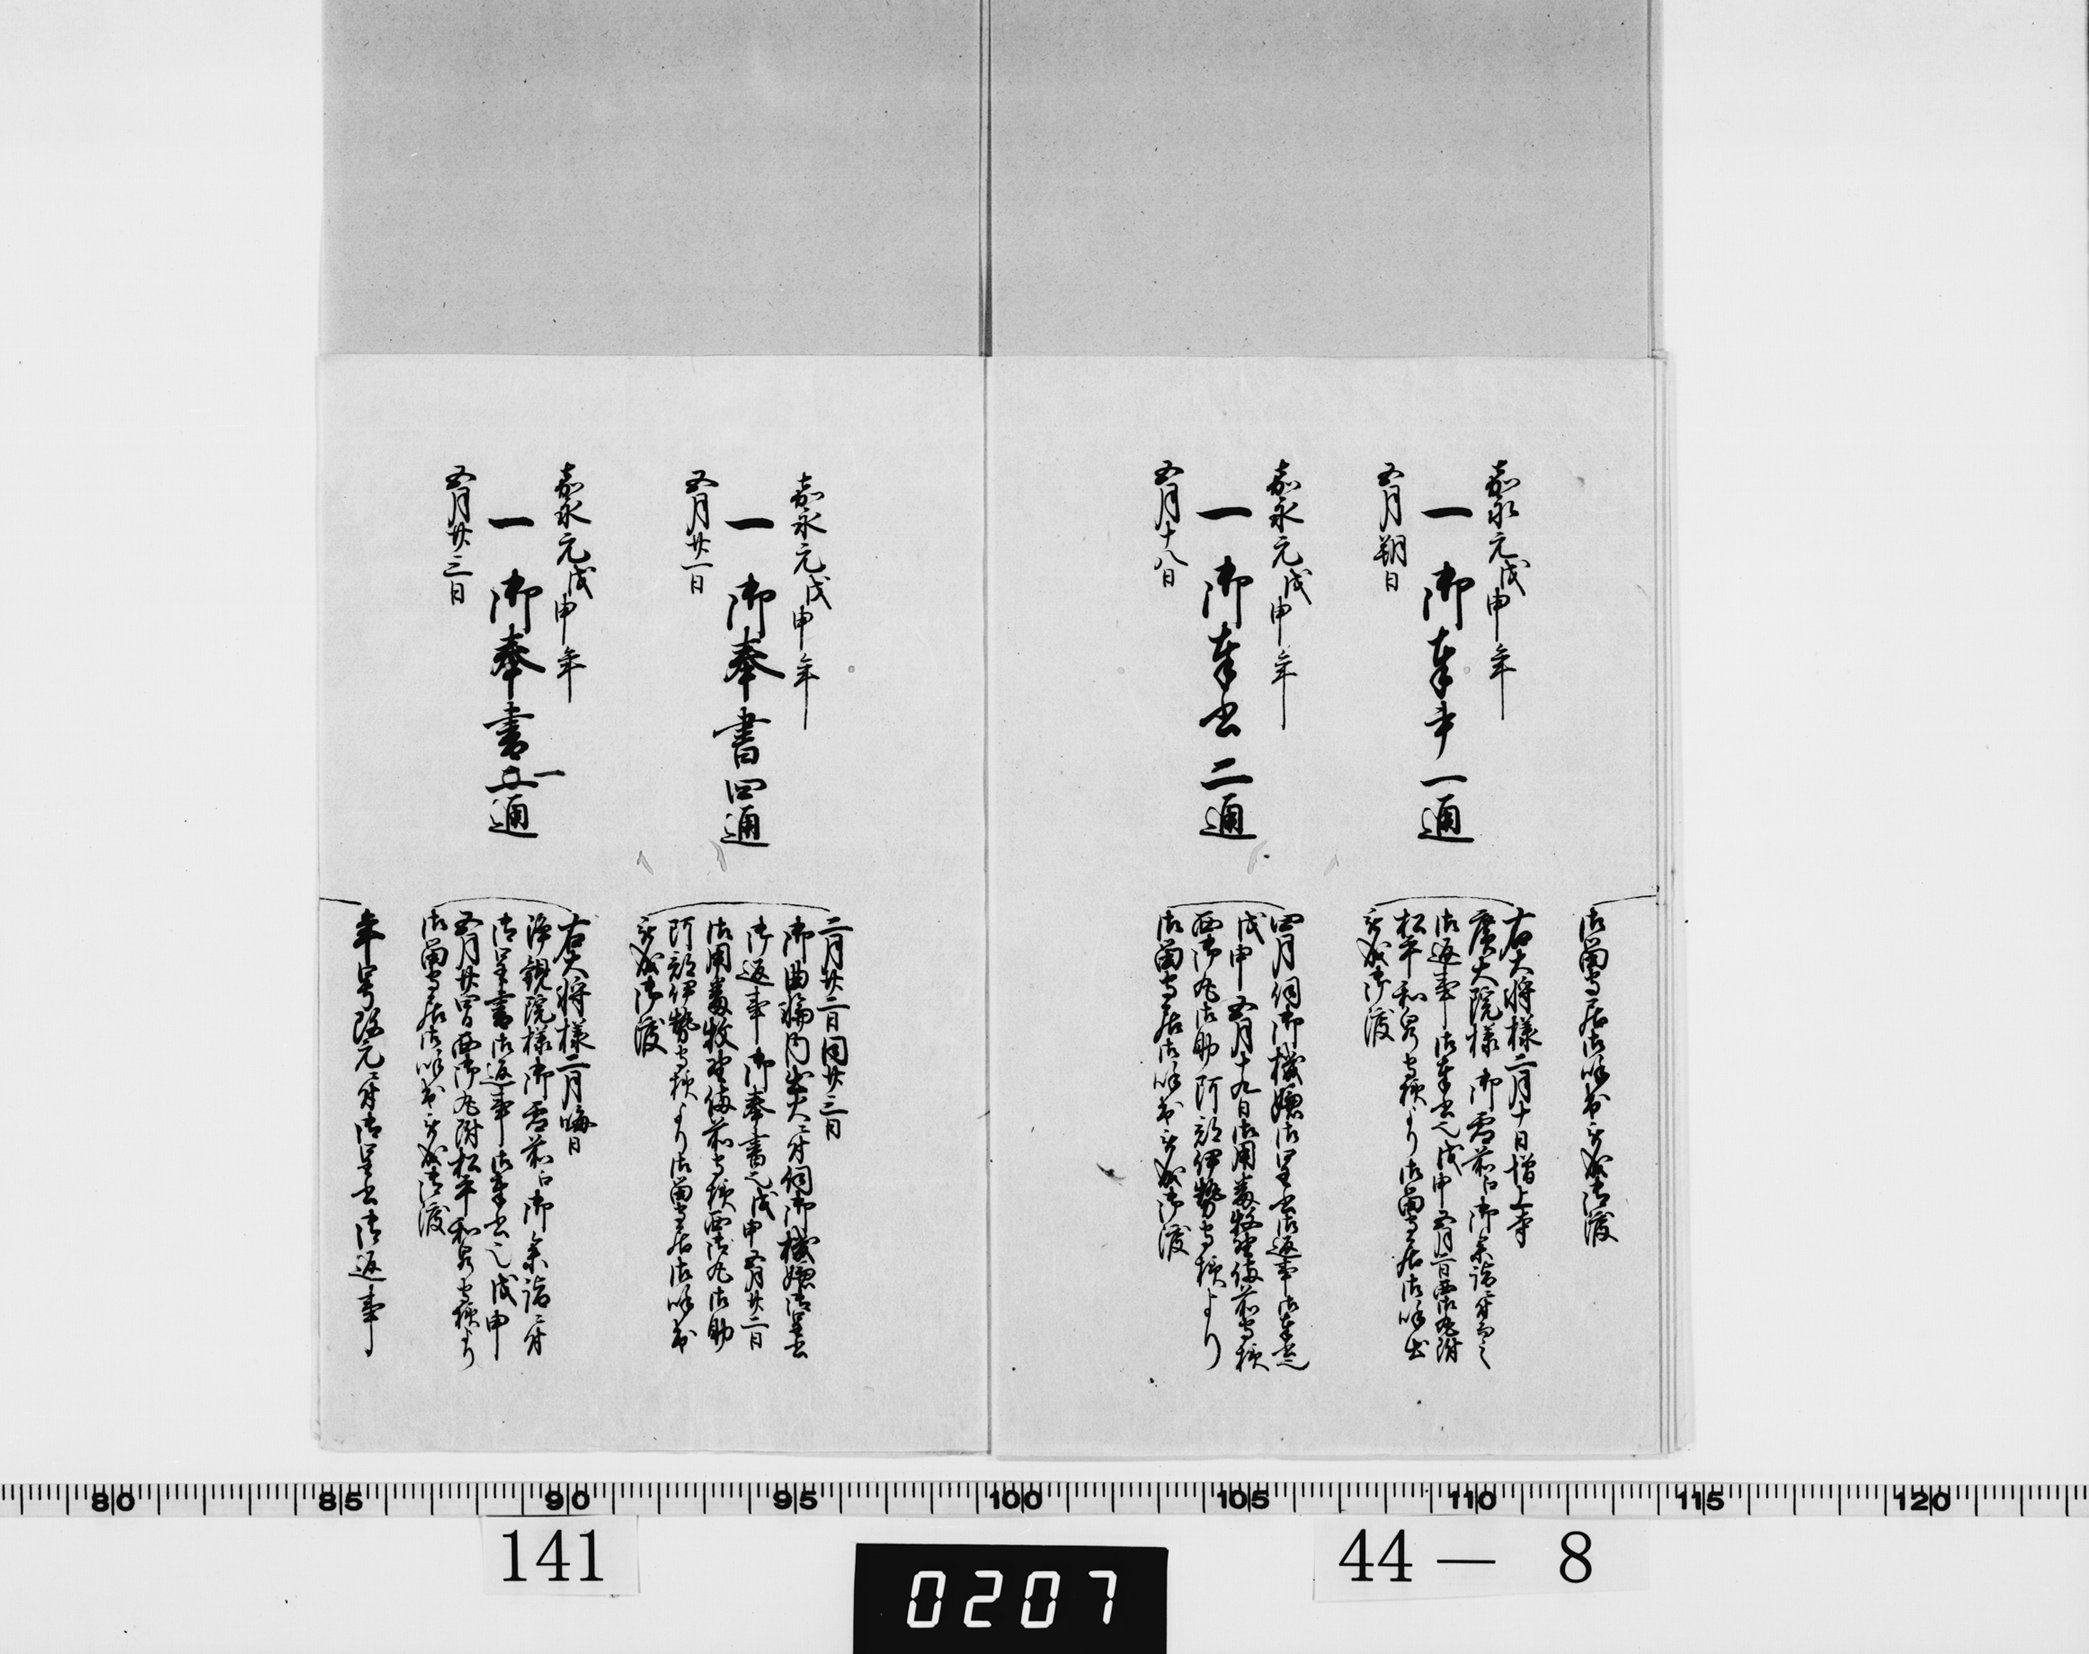 御留守居御呼出ニ而御渡
嘉永元戊申年
一 御奉書一通
五月朔日
右大将様二月十日増上寺
広大院様御霊前江御参詣ニ付而之
御返事御奉書也戊申五月二日西御丸附
松平和泉守様より御留守居御呼出
ニ而御渡
嘉永元戊申年
一 御奉書二通
五月十八日
四月伺御機嫌御呈書御返事御奉書也
戊申五月十九日御用番牧野備前守様
西御丸御助阿部伊勢守様より
御留守居御呼出ニ而御渡
嘉永元戊申年
一 御奉書四通
五月廿一日
二月廿二日同廿三日
御曲輪内出火ニ付伺御機嫌御呈書
御返事御奉書也戊申五月廿二日
御用番牧野備前守様西御丸御助
阿部伊勢守様より御留守居御呼出
ニ而御渡
嘉永元戊申年
一 御奉書一通
五月廿三日
右大将様二月晦日
浄観院様御霊前江御参詣ニ付
御呈書御返事御奉書也戊申
五月廿四日西御丸附松平和泉守様より
御留守居御呼出ニ而御渡
年号改元ニ付御呈書御返事
80 85 90 95 100 105 110 115 120
141
0207
44 — 8